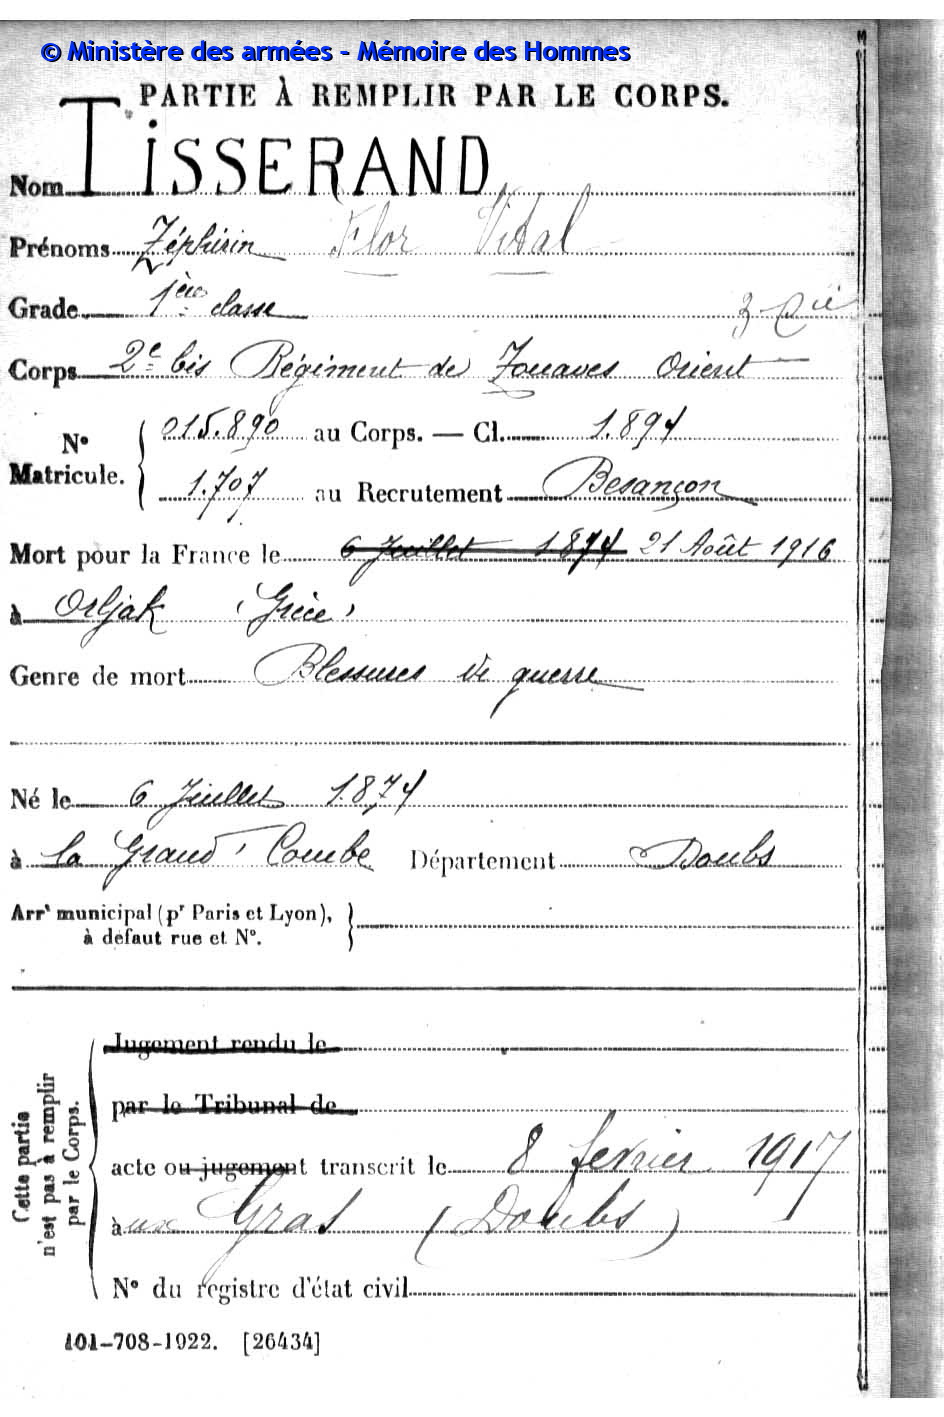 © Ministère des armées - Mémoire des Hommes
PARTIE À REMPLIR PAR LE CORPS.
Nom TISSERAND
Prénoms Zéphirin Flor Vital
Grade 1ère classe
Corps 2e bis Régiment de Zouaves Orient
N° Matricule. 015.890 au Corps. — Cl. 1.894
1.707 au Recrutement Besançon
Mort pour la France le 6 Juillet 1874 21 Août 1916
à Orljak (Grèce)
Genre de mort Blessures de guerre
Né le 6 Juillet 1.874
à La Grand' Combe Département Doubs
Arrt municipal (pr Paris et Lyon),
à défaut rue et N°.
Cette partie n'est pas à remplir par le Corps.
Jugement rendu le
par le Tribunal de
acte ou jugement transcrit le 8 février 1917
à aux Gras (Doubs)
N° du registre d'état civil
101-708-1922. [26434]